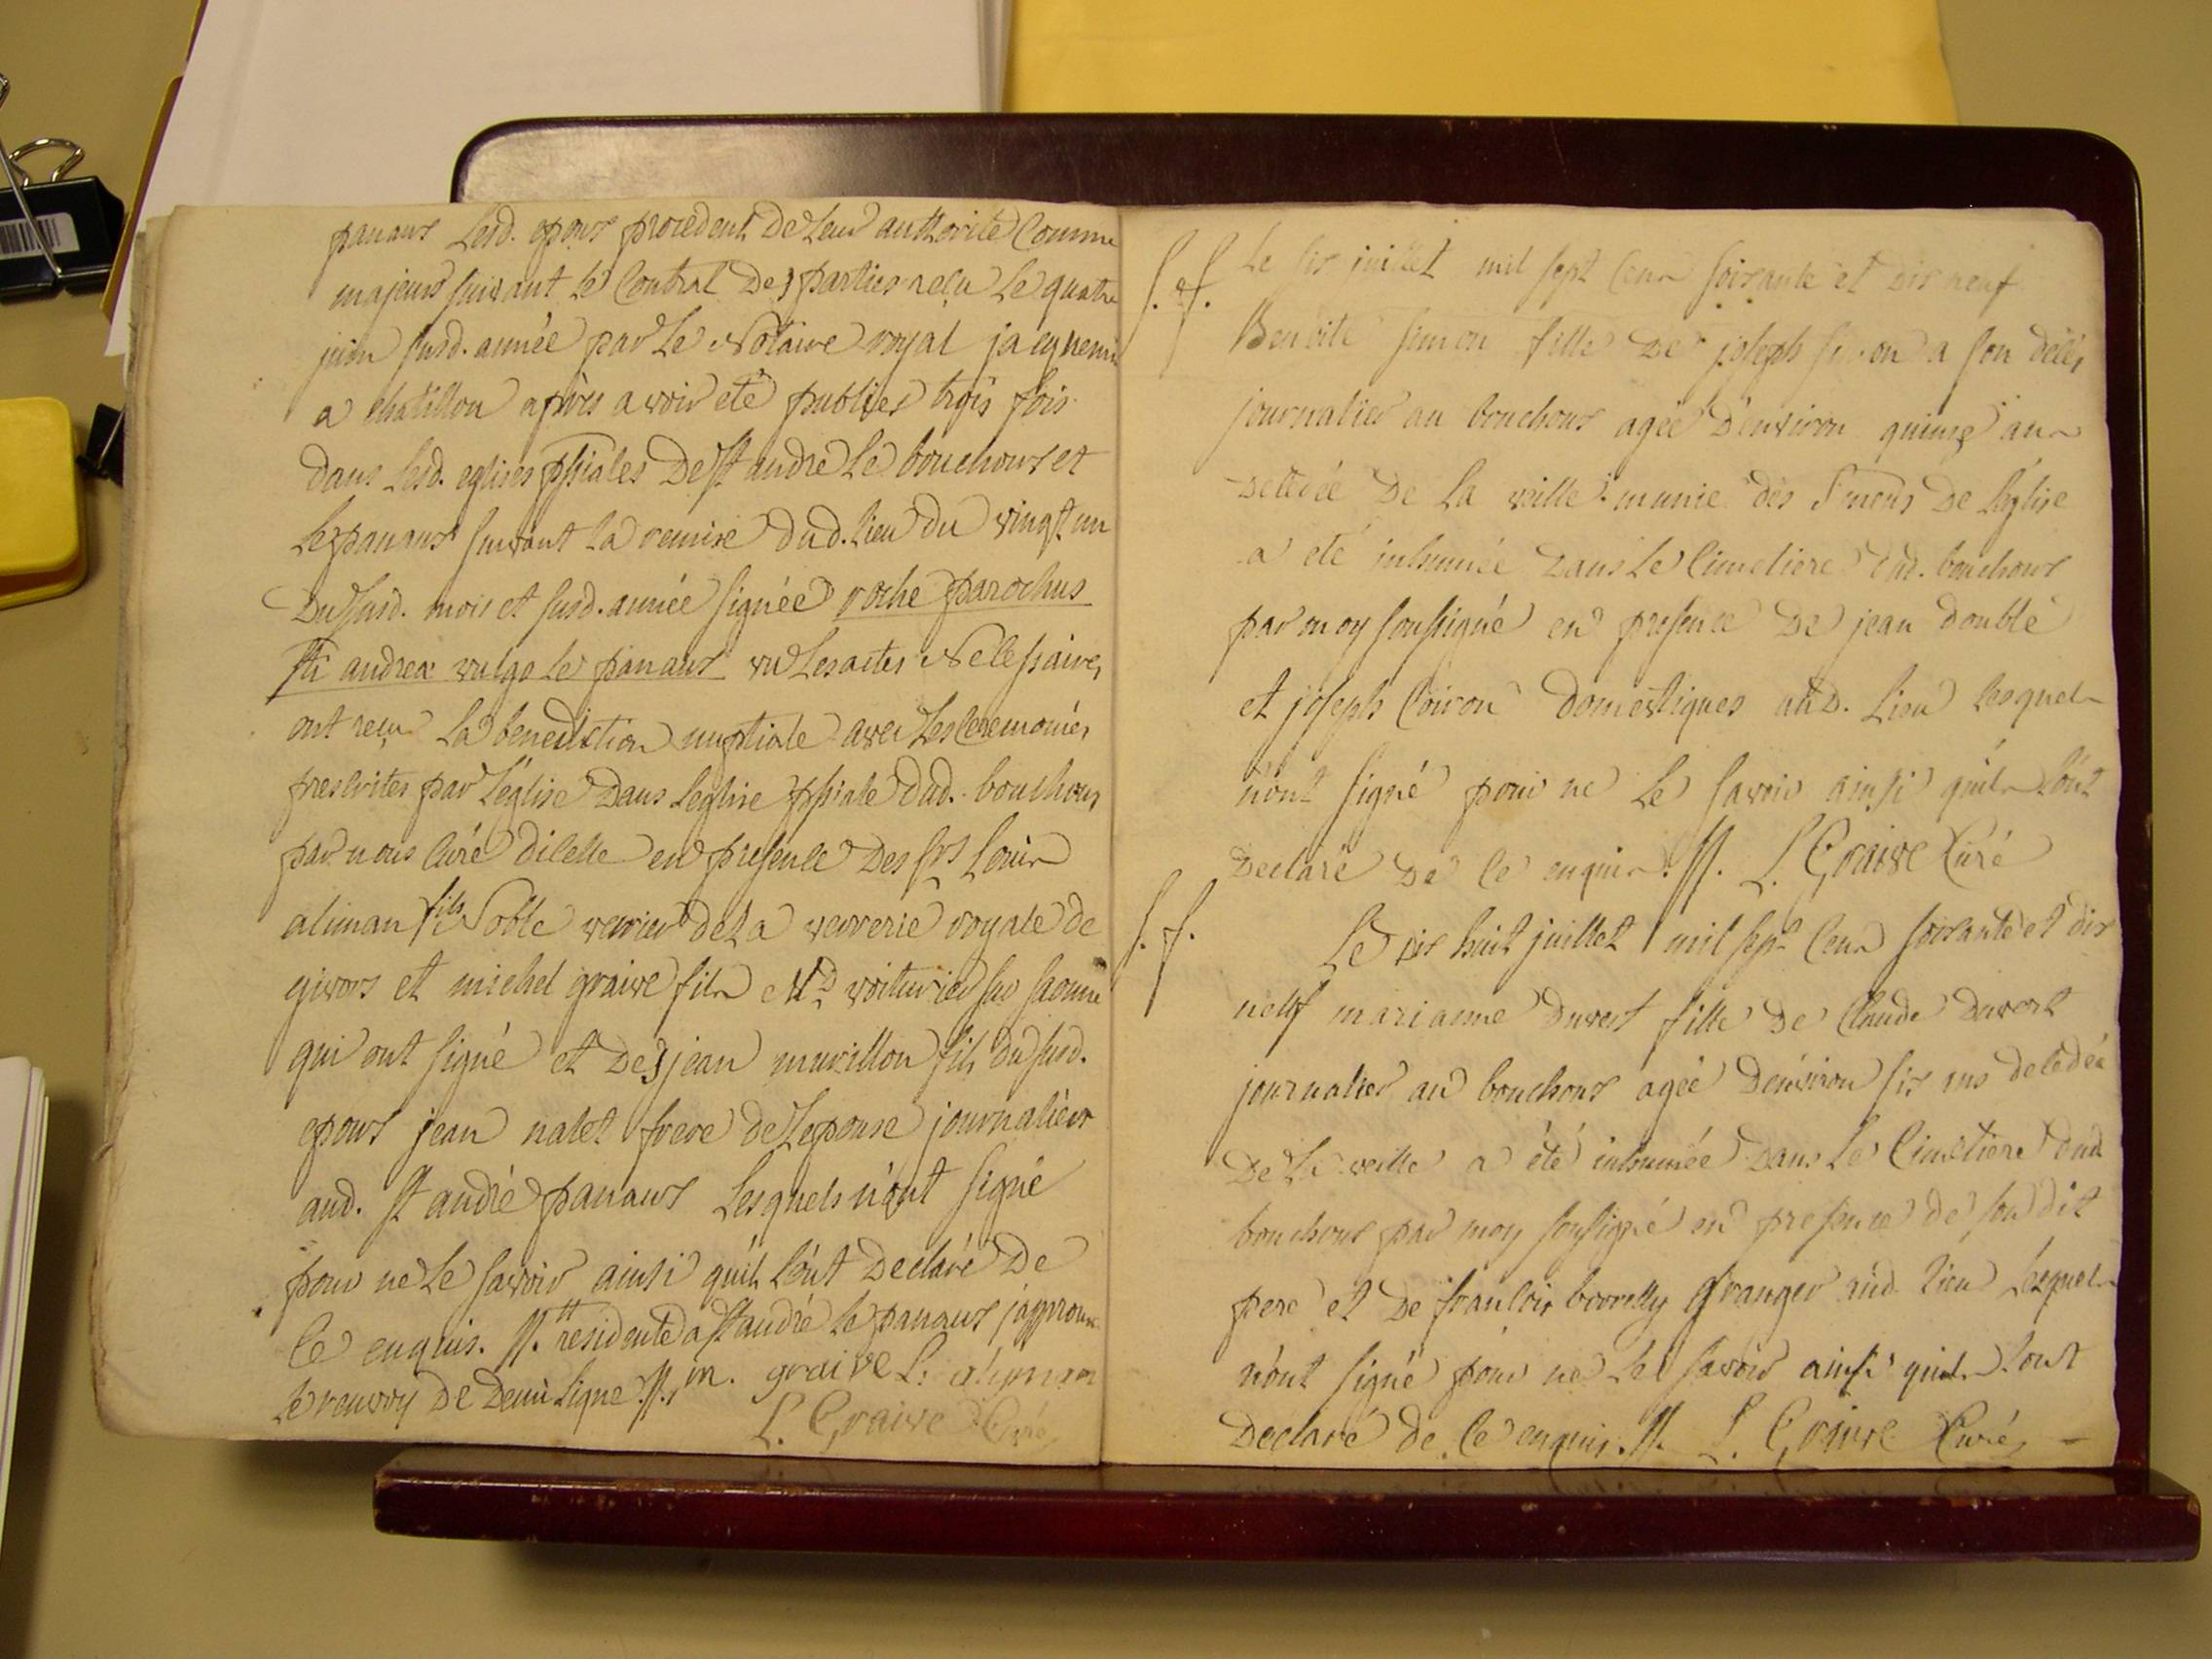 panaus Lesd. epous procedent De Leur authorité Comme
majeurs suivant le Contrat Des parties reçu Le quatre
juin susd. année par Le Notaire royal jacquemin
a chatillon après avoir eté publiés trois fois
dans lesd. eglises pssiales De st andré le bouchoux et
Le panaus suivant la remise dud. lieu du vingt un
Du susd. mois et susd. année signée roche parochus
sti andreæ vulgo le panaus vu Les actes Necessaires
ont reçu La benediction nuptiale avec Les Ceremonies
prescrites par L'eglise Dans Leglise pssiale dud. bouchoux
par nous Curé dicelle en presence Des srs Louis
aliman fils Noble verrier de La verrerie royale de
givors et michel graive fils Md voiturier sur saonne
qui ont signé et Des jean muzillon fils du susd.
epoux jean nalet frere de Lepouse journaliers
aud. st andré panaus Lesquels n'ont signé
pour ne Le savoir ainsi qu'ils l'ont Declaré De
Ce enquis. //. tt residente a st andré le panaus j'approuve
Le renvoy De Demi Ligne //. m. graive L: aliman
L. Graive Curé
S. ef. Le six juillet mil sept Cens soixante et dix neuf
Benoite simon fille De joseph simon a son déces
journalier au bouchoux agée D'environ quinze ans
decedée De la veille munie des S mens De L'eglise
a eté inhumée Dans Le Cimetiere dud. bouchoux
par moy soussigné en presence De jean doublé
et joseph Coiron Domestiques aud. Lieu lesquels
n'ont signé pour ne Le savoir ainsi qu'ils l'ont
Declaré De Ce enquis. //. L. Graive Curé
S. f. Le dix huit juillet mil sept Cens soixante et dix
neuf marianne Duvert fille De Claude Duvert
journalier au bouchoux agée D'environ six ans decedée
De La veille a été inhumée Dans Le Cimetiere dud
bouchoux par moy soussigné en presence de son dit
pere et De francois borrelly granger aud. lieu Lesquels
n'ont signé pour ne Le savoir ainsi qu'ils l'ont
Declaré de Ce enquis. //. L. Graive Curé